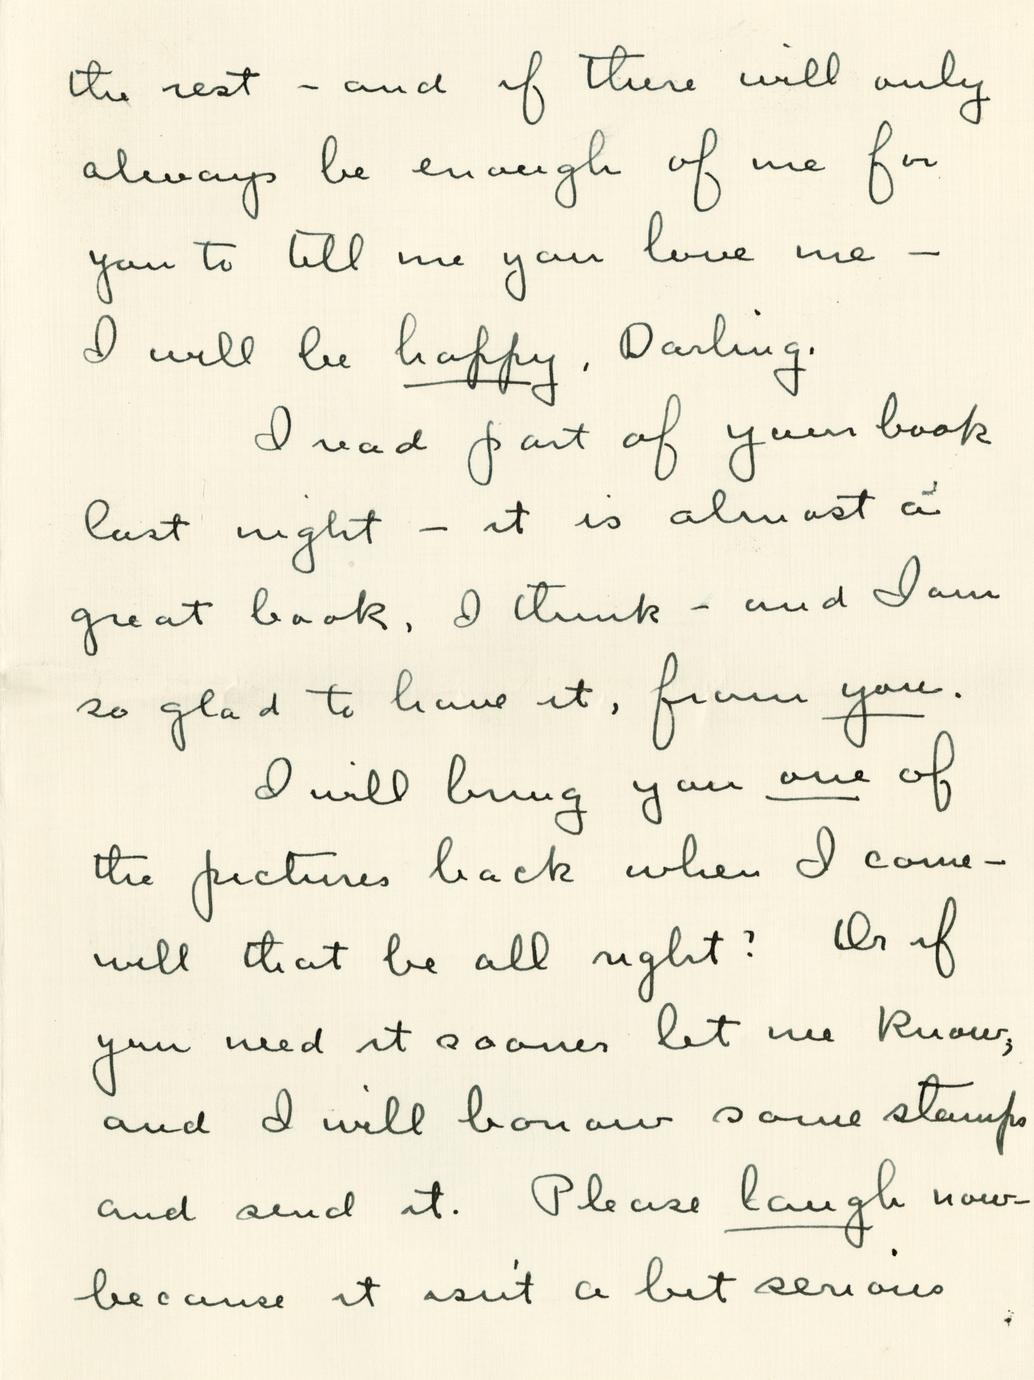 the rest - and if there will only
always be enough of me for
you to tell me you love me —
I will be happy, Darling.
I read part of your book
last night — it is almost a
great book, I think - and I am
so glad to have it, from you.
I will bring you one of
the pictures back when I come -
will that be all right? Or if
you need it sooner let me know,
and I will borrow some stamps
and send it. Please laugh now -
because it isn't a bit serious